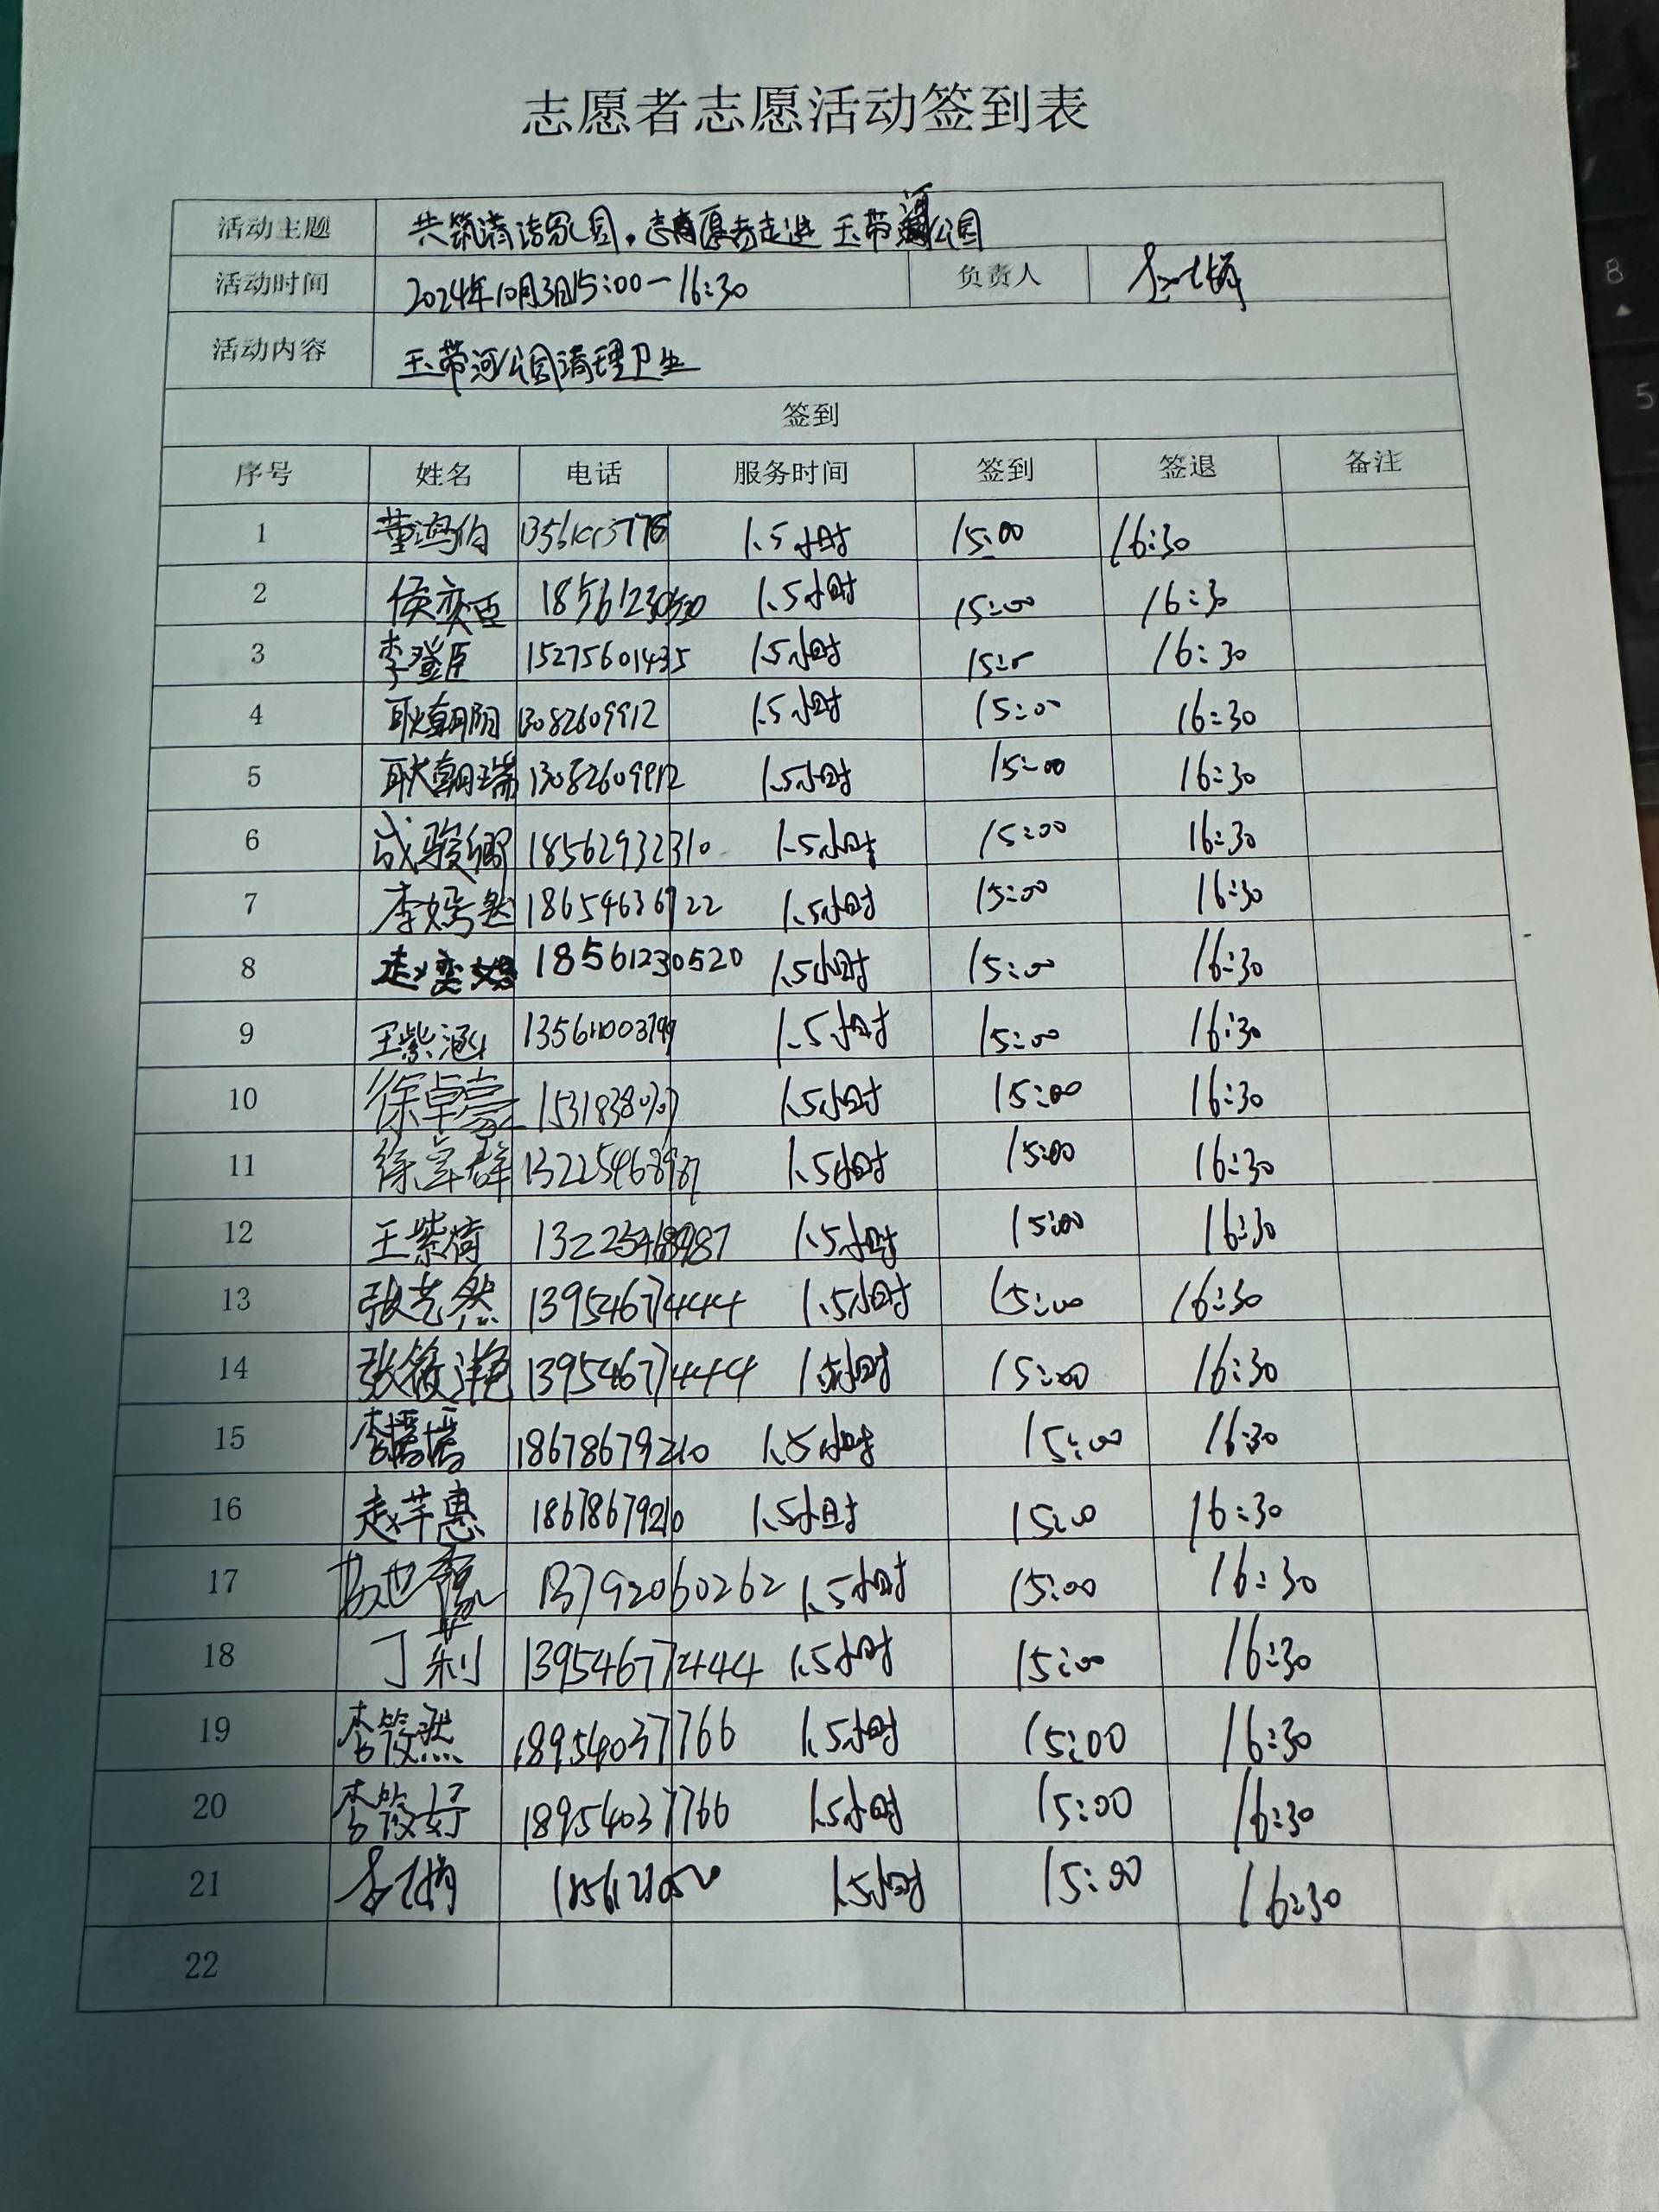 志愿者志愿活动签到表
活动主题 共筑清洁家园，志愿者走进玉带河公园
活动时间 2024年10月3日15:00-16:30 负责人
活动内容 玉带河公园清理卫生
签到
序号 姓名 电话 服务时间 签到 签退 备注
1 董鸿伯 1.5小时 15:00 16:30
2 侯奕臣 18561230520 1.5小时 15:00 16:30
3 李登臣 15275601435 1.5小时 16:30
4 耿朝阳 13082609912 1.5小时 15:00 16:30
5 耿朝瑞 13082609912 1.5小时 15:00 16:30
6 成骏卿 18562932310 1.5小时 15:00 16:30
7 李嫣然 18654636922 1.5小时 15:00 16:30
8 赵奕 18561230520 1.5小时 15:00 16:30
9 王紫涵 1.5小时 15:00 16:30
10 徐卓豪 1.5小时 15:00 16:30
11 徐卓群 13225468987 1.5小时 15:00 16:30
12 王紫琦 13225468987 1.5小时 15:00 16:30
13 张艺然 13954677444 1.5小时 15:00 16:30
14 张筱 13954677444 1.5小时 15:00 16:30
15 18678679210 1.5小时 15:00 16:30
16 赵芊惠 18678679210 1.5小时 15:00 16:30
17 13792060262 1.5小时 15:00 16:30
18 丁莉 13954677444 1.5小时 15:00 16:30
19 李筱然 18954037766 1.5小时 15:00 16:30
20 李筱好 18954037766 1.5小时 15:00 16:30
21 1.5小时 15:00 16:30
22